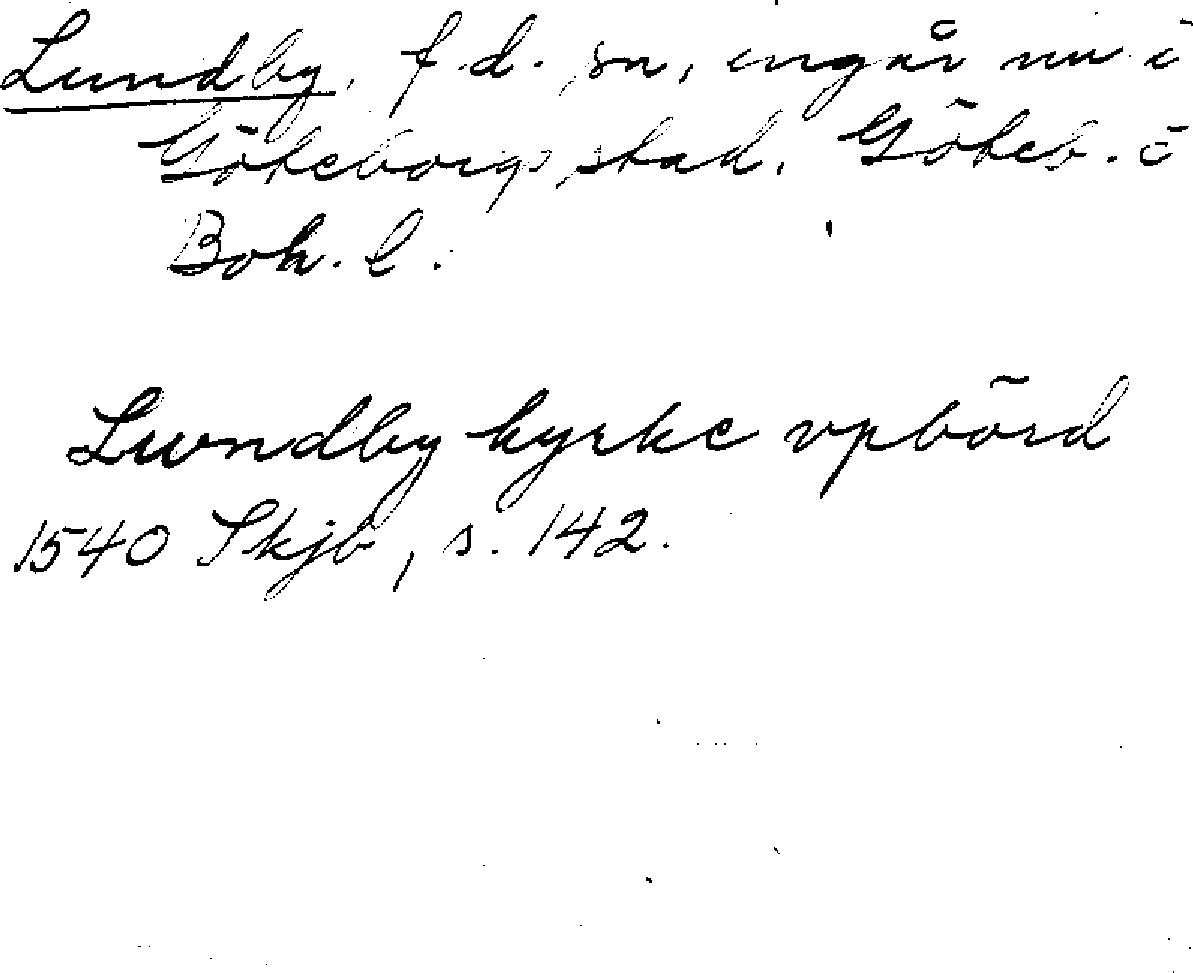 Lundby, f.d. sn, ingår nu i
Göteborgs stad. Göteb. o
Boh. l.
Lwndby kyrke vpbörd
1540 Skjb, s. 142.